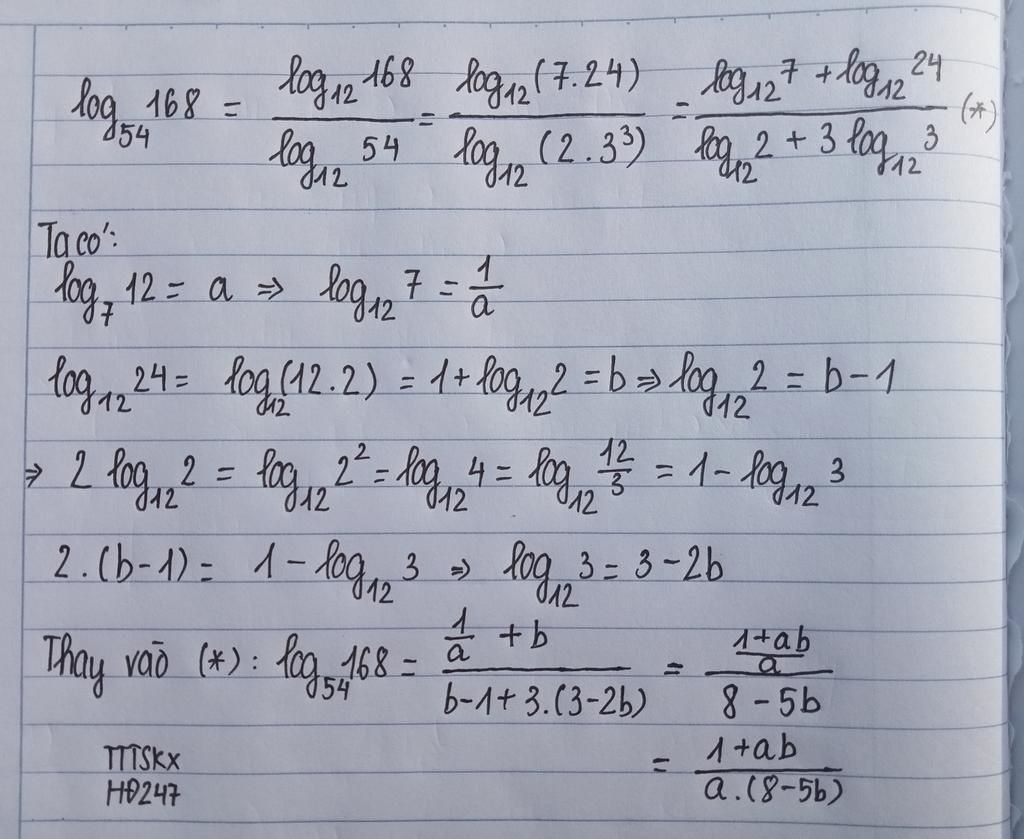 log₅₄168 = log₁₂168 / log₁₂54 = log₁₂(7.24) / log₁₂(2.3³) = (log₁₂7 + log₁₂24) / (log₁₂2 + 3log₁₂3) (*)
Ta có:
log₇12 = a ⇒ log₁₂7 = 1/a
log₁₂24 = log₁₂(12.2) = 1 + log₁₂2 = b ⇒ log₁₂2 = b - 1
⇒ 2 log₁₂2 = log₁₂2² = log₁₂4 = log₁₂ 12/3 = 1 - log₁₂3
2.(b-1) = 1 - log₁₂3 ⇒ log₁₂3 = 3 - 2b
Thay vào (*): log₅₄168 = (1/a + b) / (b-1+3.(3-2b)) = ((1+ab)/a) / (8-5b)
= (1+ab) / (a.(8-5b))
TTTSKX
HĐ247